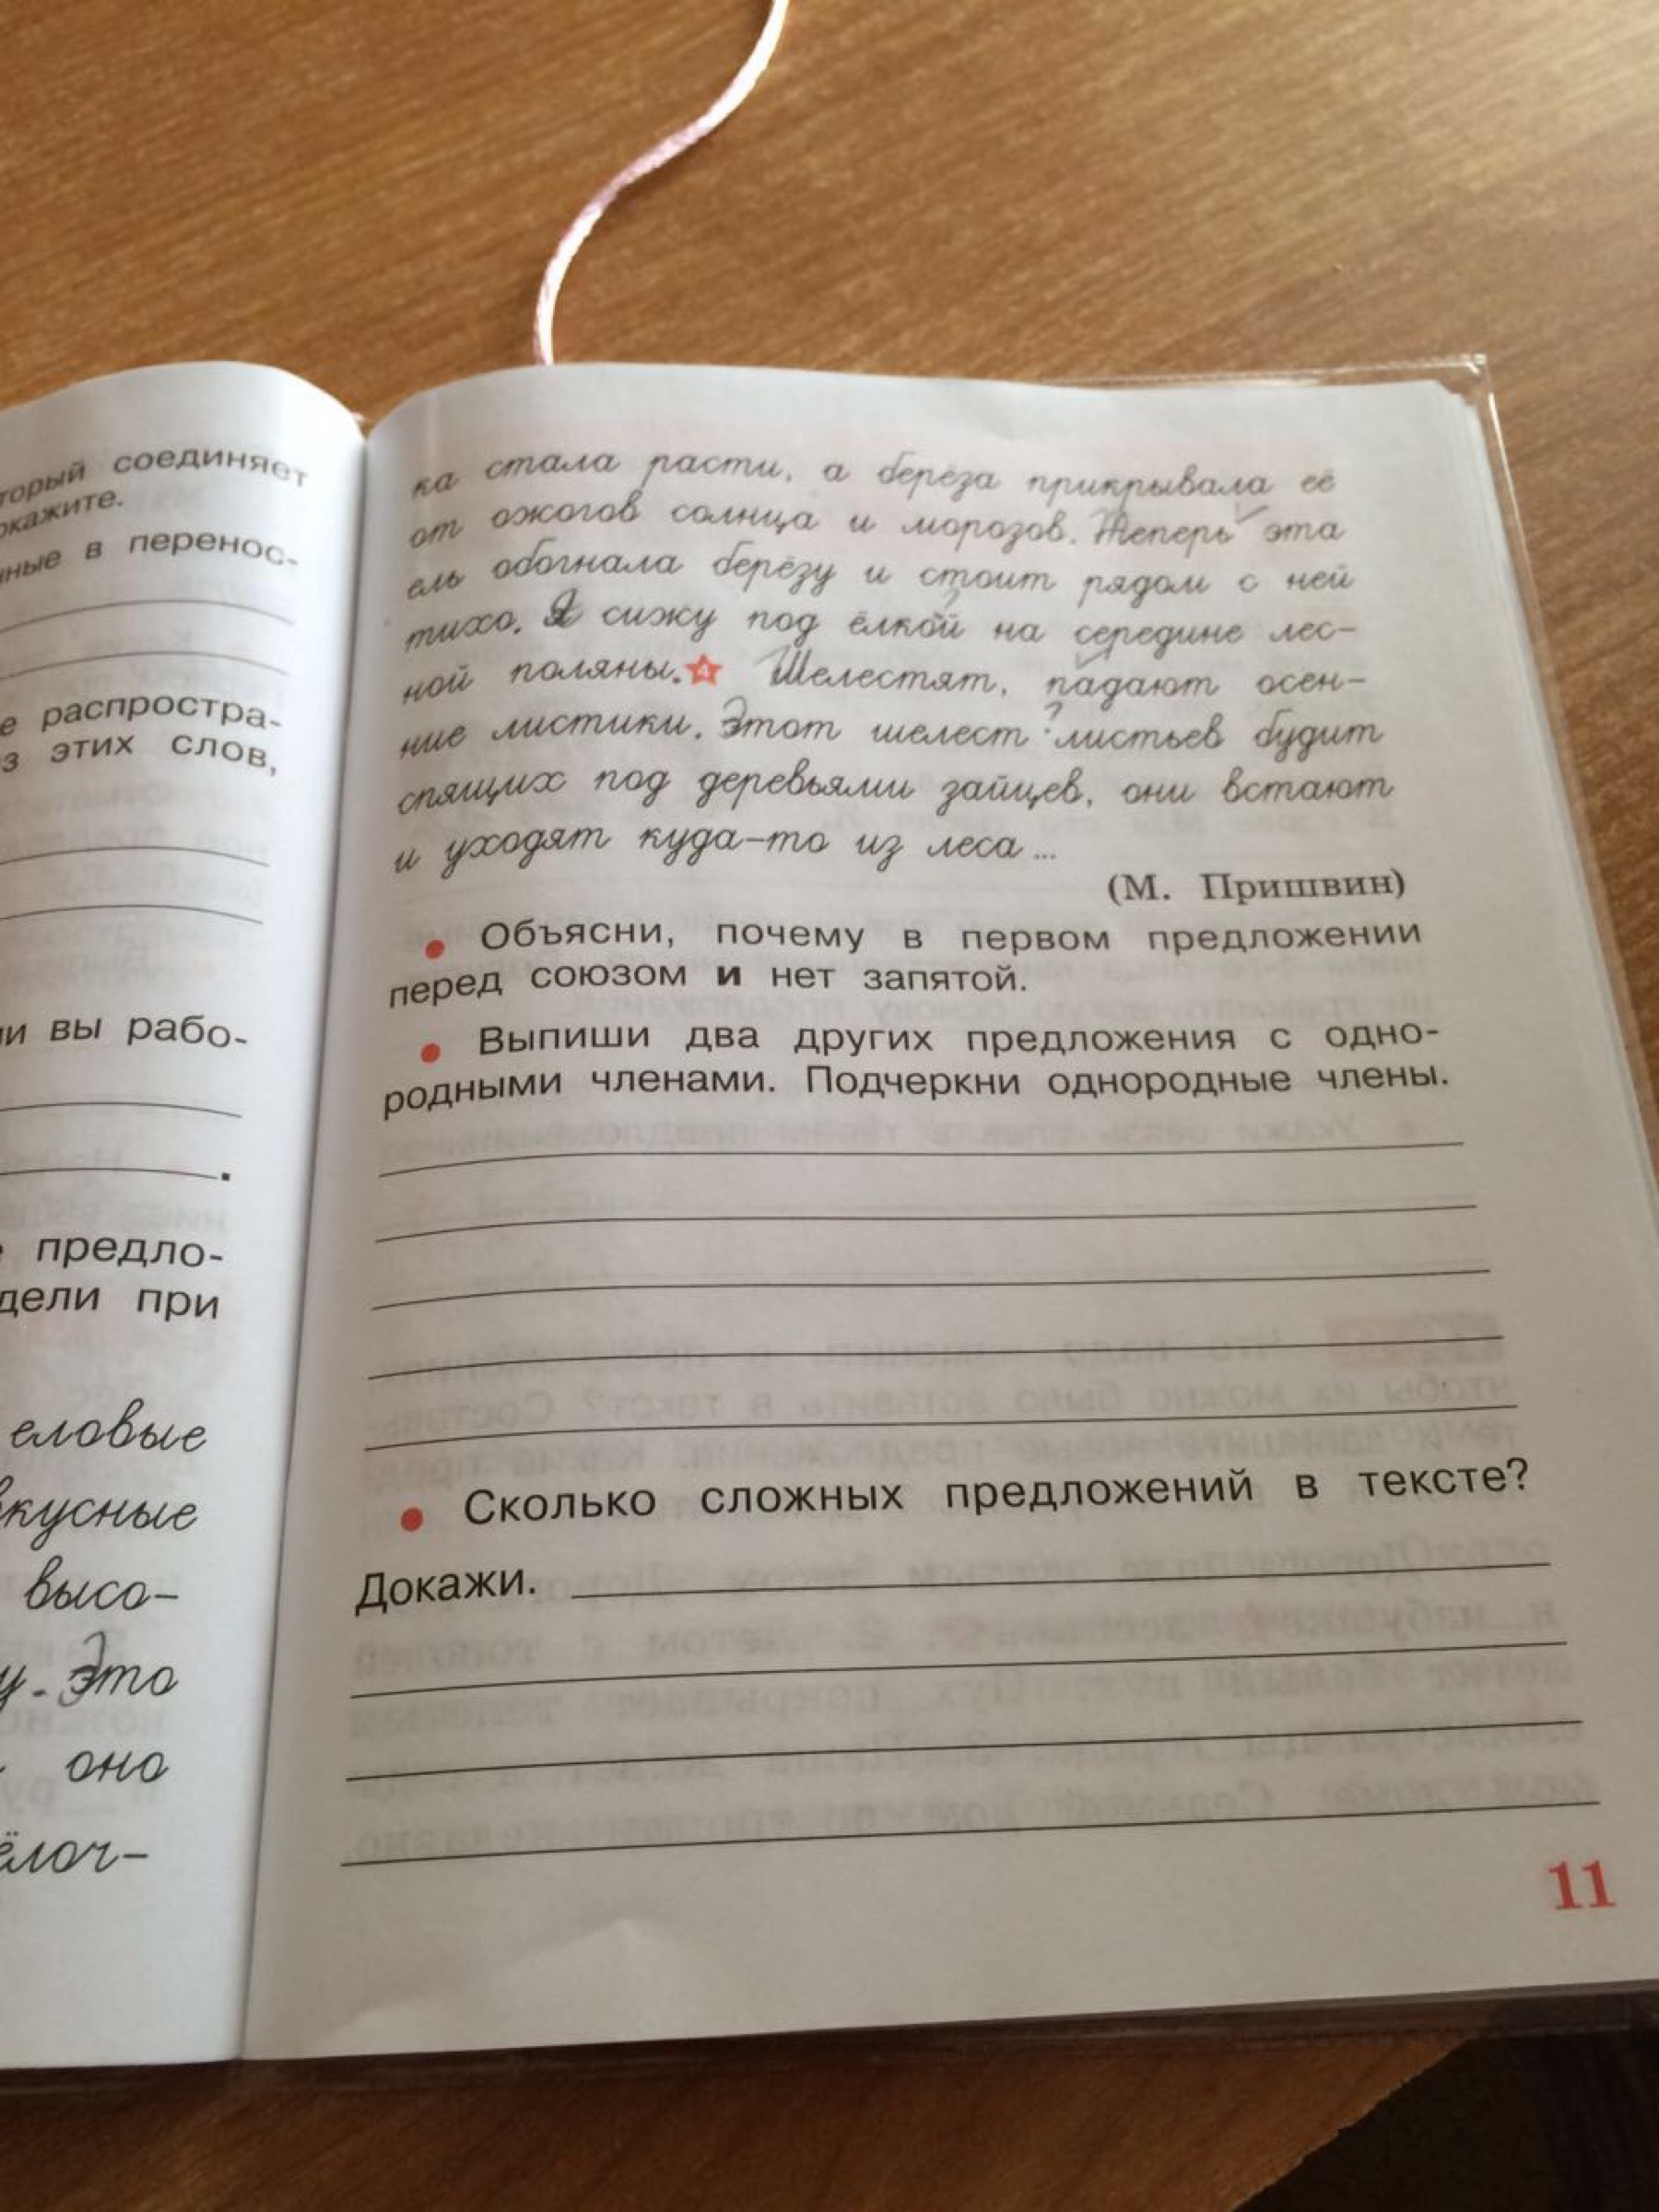 торый соединяет
окажите.
нные в перенос-
е распростра-
з этих слов,
и вы рабо-
предло-
дели при
еловые
вкусные
высо-
у. Это
оно
ёлоч-
ка стала расти, а берёза прикрывала её
от ожогов солнца и морозов. Теперь эта
ель обогнала берёзу и стоит рядом с ней
тихо. Я сижу под ёлкой на середине лес-
ной поляны. 4 Шелестят, падают осен-
ние листики. Этот шелест листьев будит
спящих под деревьями зайцев, они встают
и уходят куда-то из леса ...
(М. Пришвин)
• Объясни, почему в первом предложении
перед союзом и нет запятой.
• Выпиши два других предложения с одно-
родными членами. Подчеркни однородные члены.
• Сколько сложных предложений в тексте?
Докажи.
11